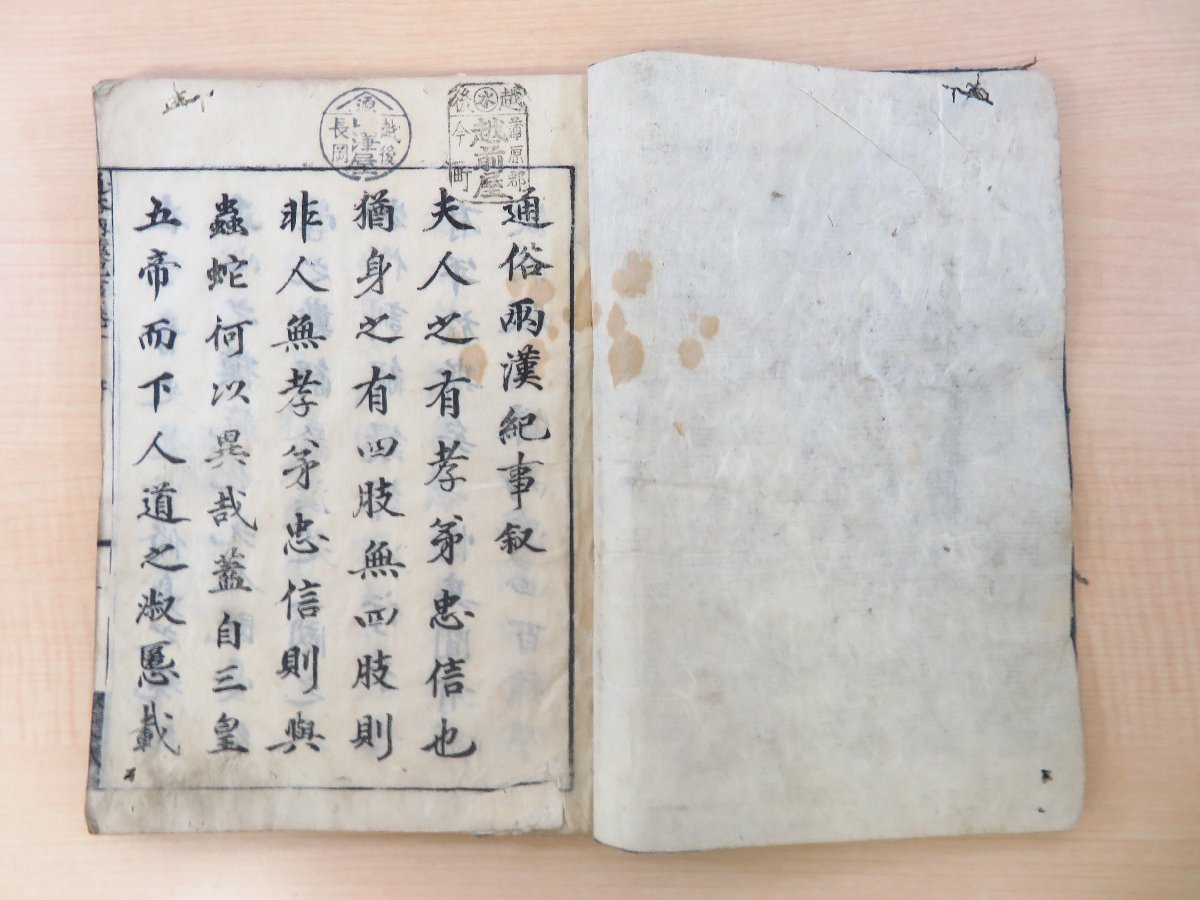 通俗兩漢紀事叙
夫人之有孝弟忠信也
猶身之有四肢無四肢則
非人無孝弟忠信則與
蟲蛇何以異哉蓋自三皇
五帝而下人道之淑慝載
越後
蒲原郡
今町
越前屋
越後
長岡
津屋